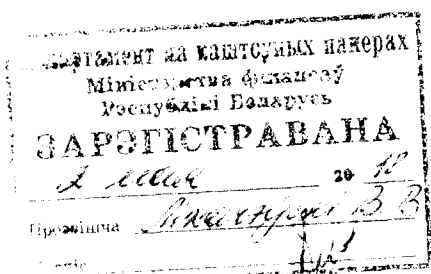 Дэпартамент па каштоўных паперах
Міністэрства фінансаў
Рэспублікі Беларусь
ЗАРЭГІСТРАВАНА
2 мая 20 18
Прозвішча В В